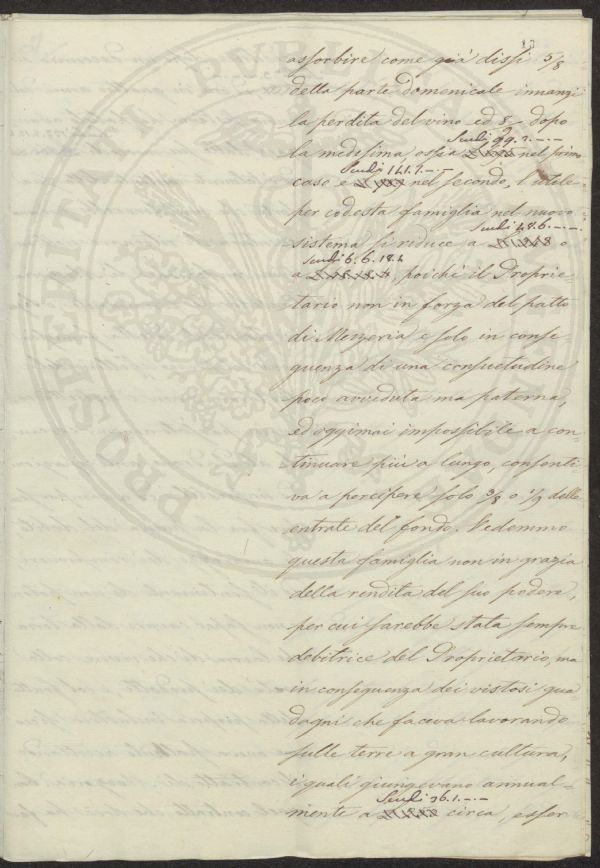 assorbire come già dissi 5/8
della parte domenicale innanzi
la perdita del vino ed dopo
Scudi 99.
la medesima, ossia nel primo
Scudi 141.7.--
caso e nel secondo, l'utile
per codesta famiglia nel nuovo
Scudi 48.6.---
sistema si riduce a o
Scudi 6.6.18.4
a , poichè il Proprie-
tario non in forza del patto
di Mezzeria e solo in conse-
guenza di una consuetudine
poco avveduta ma paterna,
ed oggimai impossibile a con-
tinuare più a lungo, consenti-
va a percipere solo 3/8 o delle
entrate del fondo. Vedemmo
questa famiglia non in grazia
della rendita del suo podere,
per cui sarebbe stata sempre
debitrice del Proprietario, ma
in conseguenza dei vistosi gua-
dagni che faceva lavorando
sulle terre a gran cultura,
i quali giungevano annual-
Scudi 36.1.--
mente a circa, esser
PROSPERITATI PUBLICAE